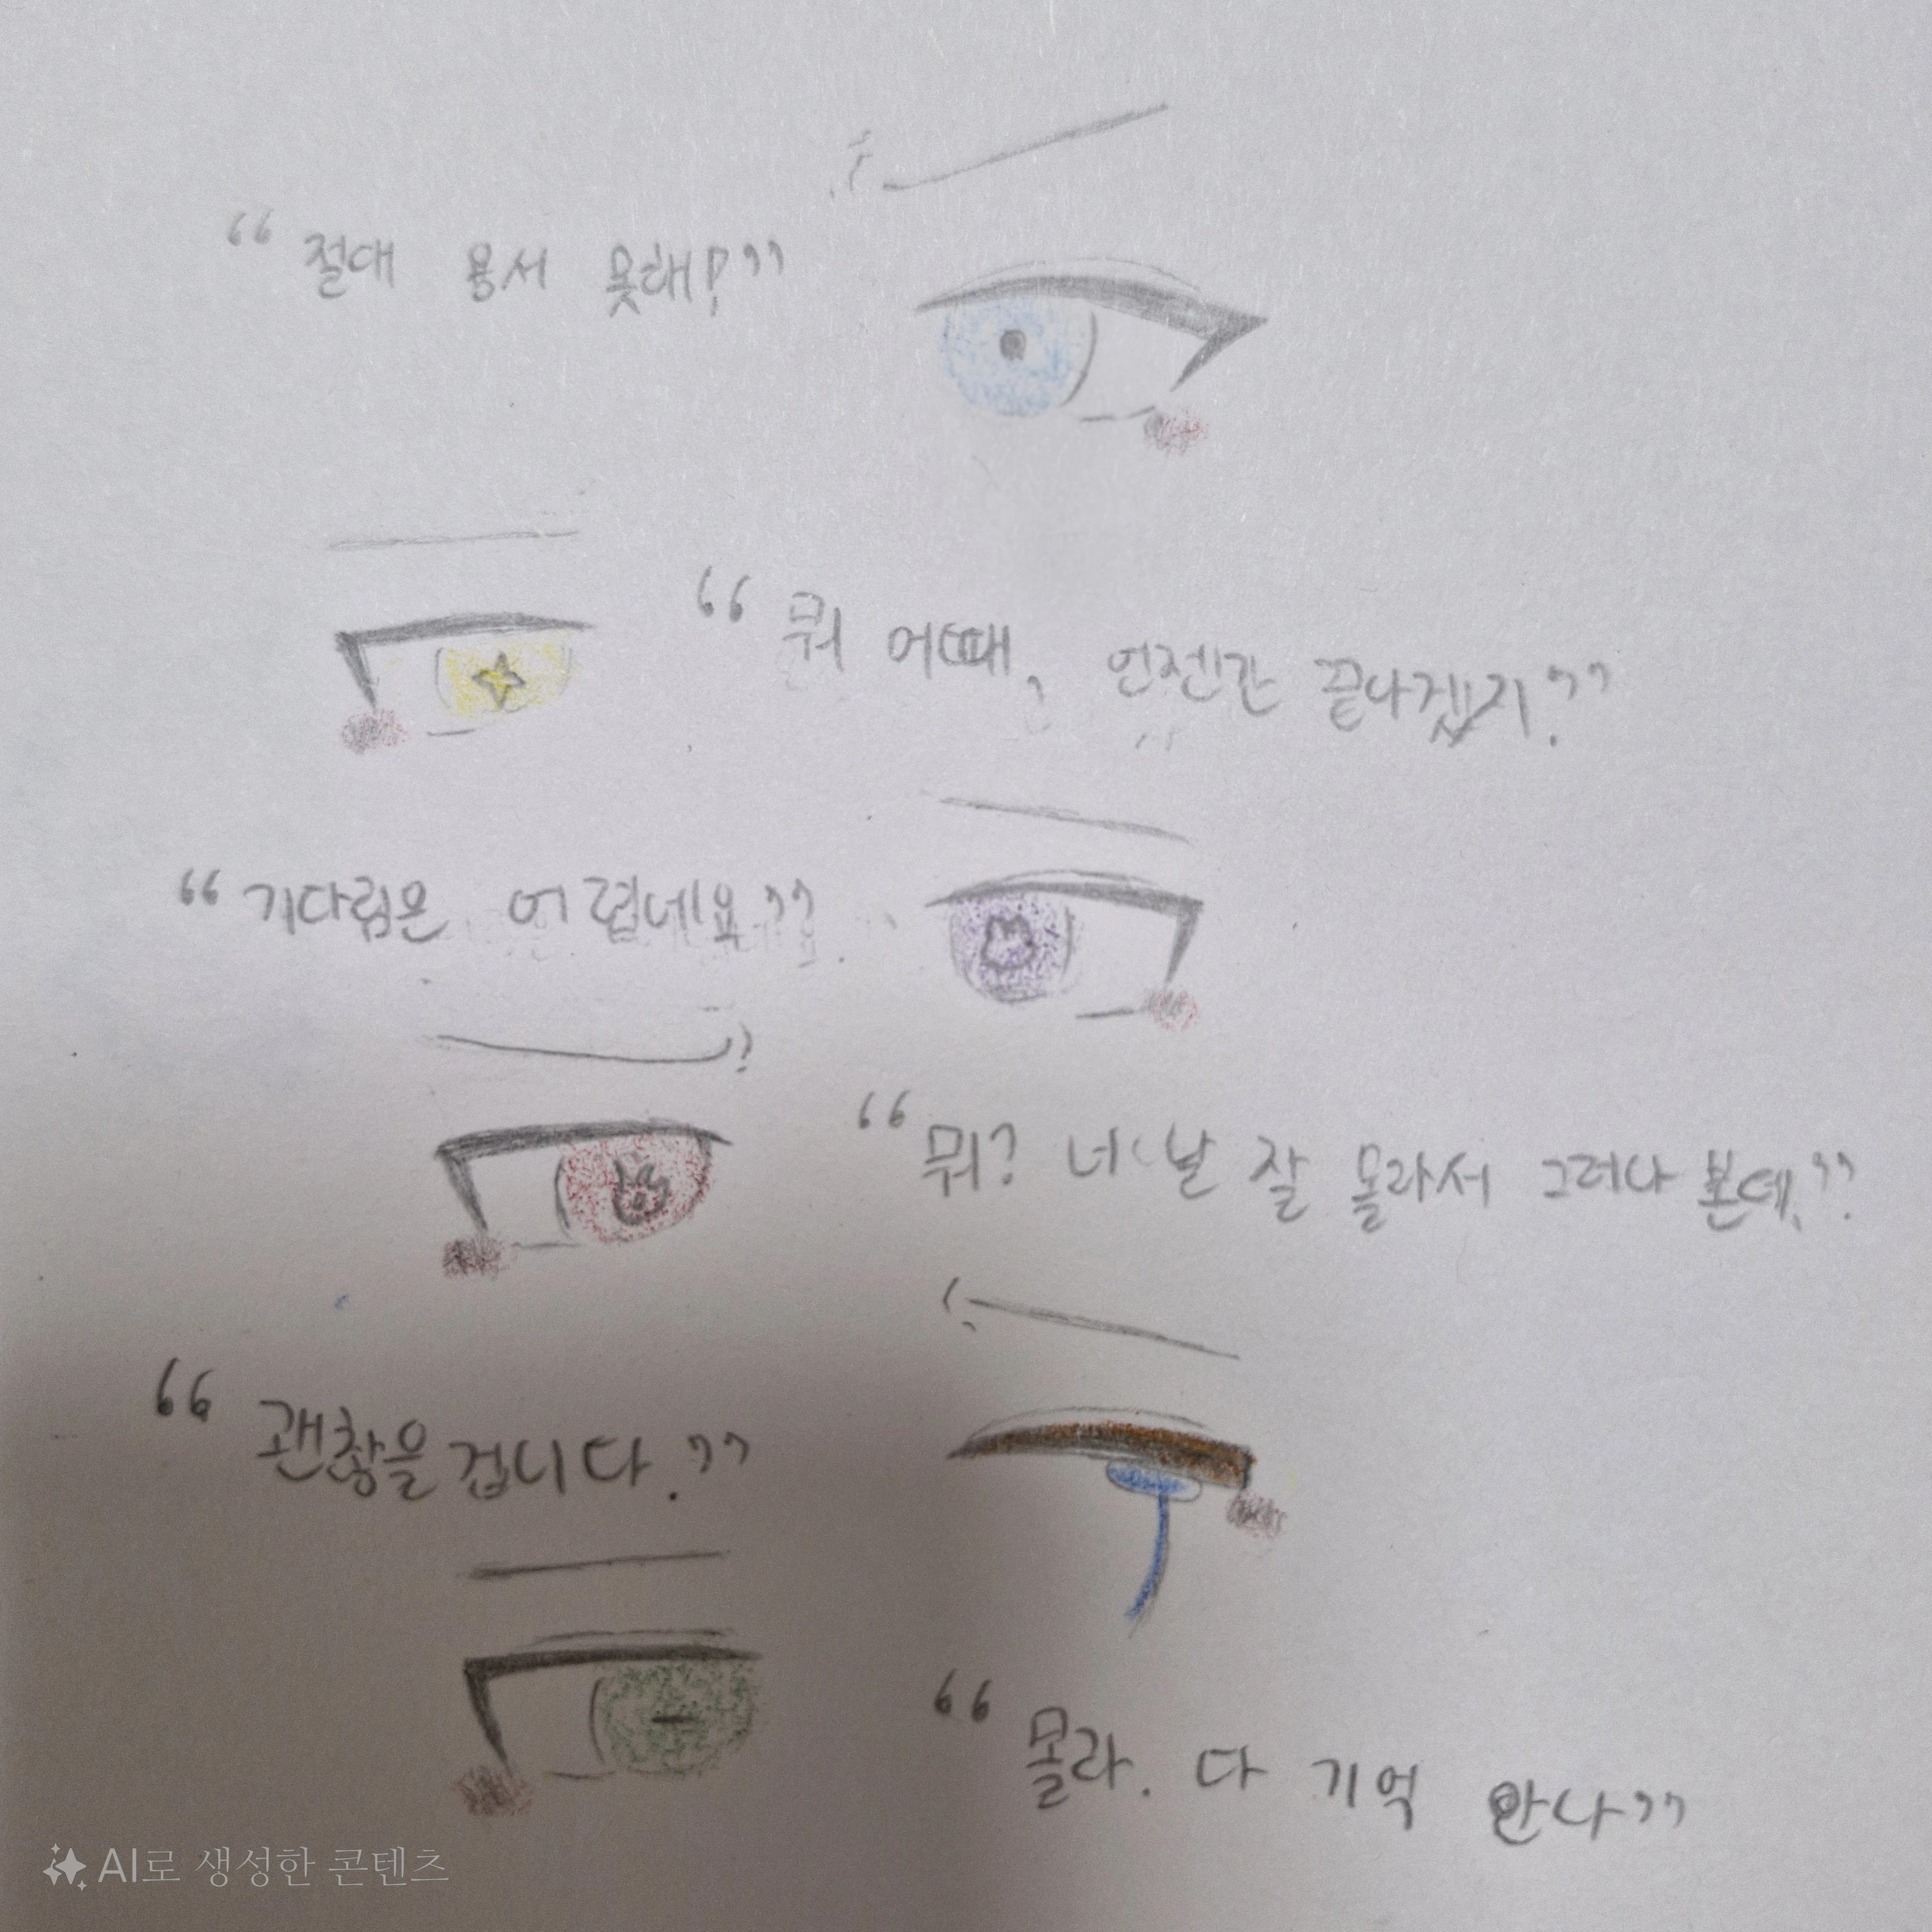 “절대 용서 못해!”
“뭐 어때, 언젠간 끝나겠지.”
“기다림은 어렵네요”.
“뭐? 너 날 잘 몰라서 그러나 본데,”.
“괜찮을겁니다.”
“몰라. 다 기억 안나”
AI로 생성한 콘텐츠